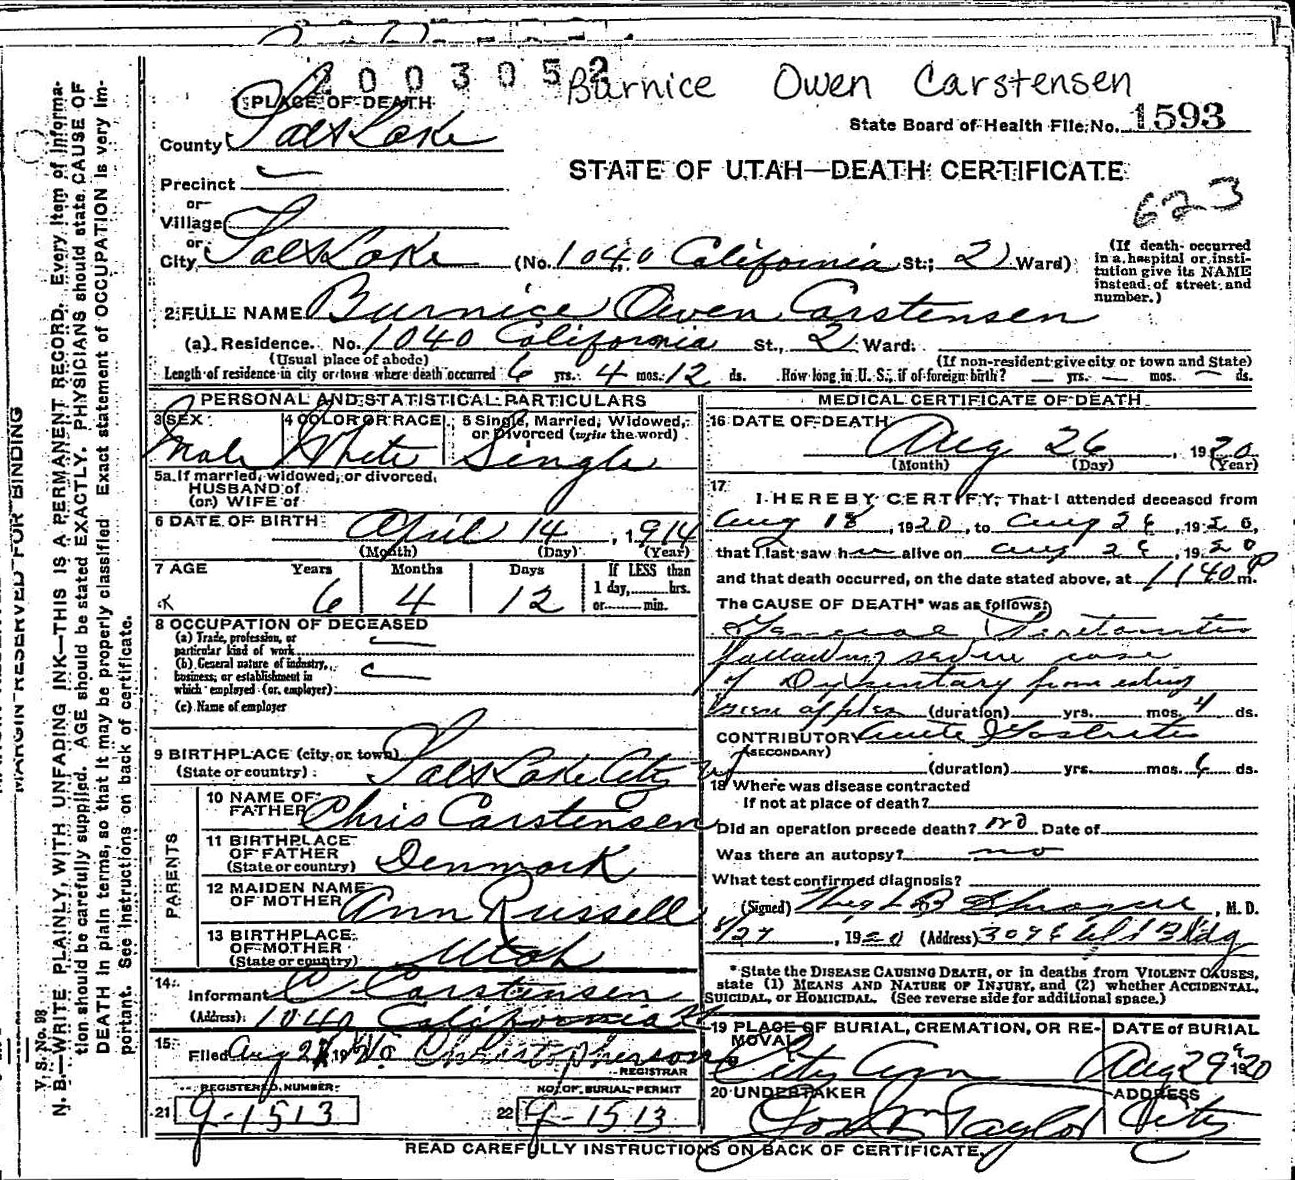 2003052 Burnice Owen Carstensen
PLACE OF DEATH
State Board of Health File No. 1593
County Salt Lake
STATE OF UTAH—DEATH CERTIFICATE
623
Precinct
or
Village
or
City Salt Lake (No. 1040 California St.; 2 Ward)
(If death occurred in a hospital or institution give its NAME instead of street and number.)
2 FULL NAME Burnice Owen Carstensen
(a) Residence. No. 1040 California St., 2 Ward.
(Usual place of abode) (If non-resident give city or town and State)
Length of residence in city or town where death occurred 6 yrs. 4 mos. 12 ds. How long in U. S., if of foreign birth? — yrs. — mos. — ds.
PERSONAL AND STATISTICAL PARTICULARS
3 SEX 4 COLOR OR RACE 5 Single, Married, Widowed, or Divorced (write the word)
Male White Single
5a. If married, widowed, or divorced,
HUSBAND of
(or) WIFE of
6 DATE OF BIRTH April 14, 1914
(Month) (Day) (Year)
7 AGE Years Months Days If LESS than
1 day,......hrs.
6 4 12 or......min.
8 OCCUPATION OF DECEASED
(a) Trade, profession, or
particular kind of work
(b) General nature of industry,
business, or establishment in
which employed (or employer)
(c) Name of employer
9 BIRTHPLACE (city or town) Salt Lake City Ut
(State or country)
PARENTS
10 NAME OF FATHER Chris Carstensen
11 BIRTHPLACE OF FATHER Denmark
(State or country)
12 MAIDEN NAME OF MOTHER Ann Russell
13 BIRTHPLACE OF MOTHER Utah
(State or country)
14
Informant C Carstensen
(Address) 1040 California
15
Filed Aug 27 19 Christopherson
REGISTRAR
REGISTERED NUMBER NO. OF BURIAL PERMIT
21 9-1513 22 9-1513
MEDICAL CERTIFICATE OF DEATH
16 DATE OF DEATH Aug 26, 1920
(Month) (Day) (Year)
17
I HEREBY CERTIFY, That I attended deceased from
Aug 18, 1920, to Aug 26, 1920,
that I last saw h alive on Aug 26, 1920
and that death occurred, on the date stated above, at 1140 P m.
The CAUSE OF DEATH* was as follows:
General Peritonitis
following severe case
of Dysentary from eating
green apples (duration) yrs. mos. 4 ds.
CONTRIBUTORY Acute Gastritis
(SECONDARY)
(duration) yrs. mos. 6 ds.
18 Where was disease contracted
If not at place of death?
Did an operation precede death? no Date of
Was there an autopsy? no
What test confirmed diagnosis?
(Signed) , M. D.
8/27, 1920 (Address) Bldg
*State the DISEASE CAUSING DEATH, or in deaths from VIOLENT CAUSES,
state (1) MEANS AND NATURE OF INJURY, and (2) whether ACCIDENTAL,
SUICIDAL, or HOMICIDAL. (See reverse side for additional space.)
19 PLACE OF BURIAL, CREMATION, OR REMOVAL DATE OF BURIAL
City Cem Aug 29 1920
20 UNDERTAKER ADDRESS
Jos Wm Taylor City
READ CAREFULLY INSTRUCTIONS ON BACK OF CERTIFICATE.
MARGIN RESERVED FOR BINDING
V. S. No. 98
N. B.—WRITE PLAINLY, WITH UNFADING INK—THIS IS A PERMANENT RECORD. Every item of informa-
tion should be carefully supplied. AGE should be stated EXACTLY. PHYSICIANS should state CAUSE OF
DEATH in plain terms, so that it may be properly classified. Exact statement of OCCUPATION is very im-
portant. See instructions on back of certificate.